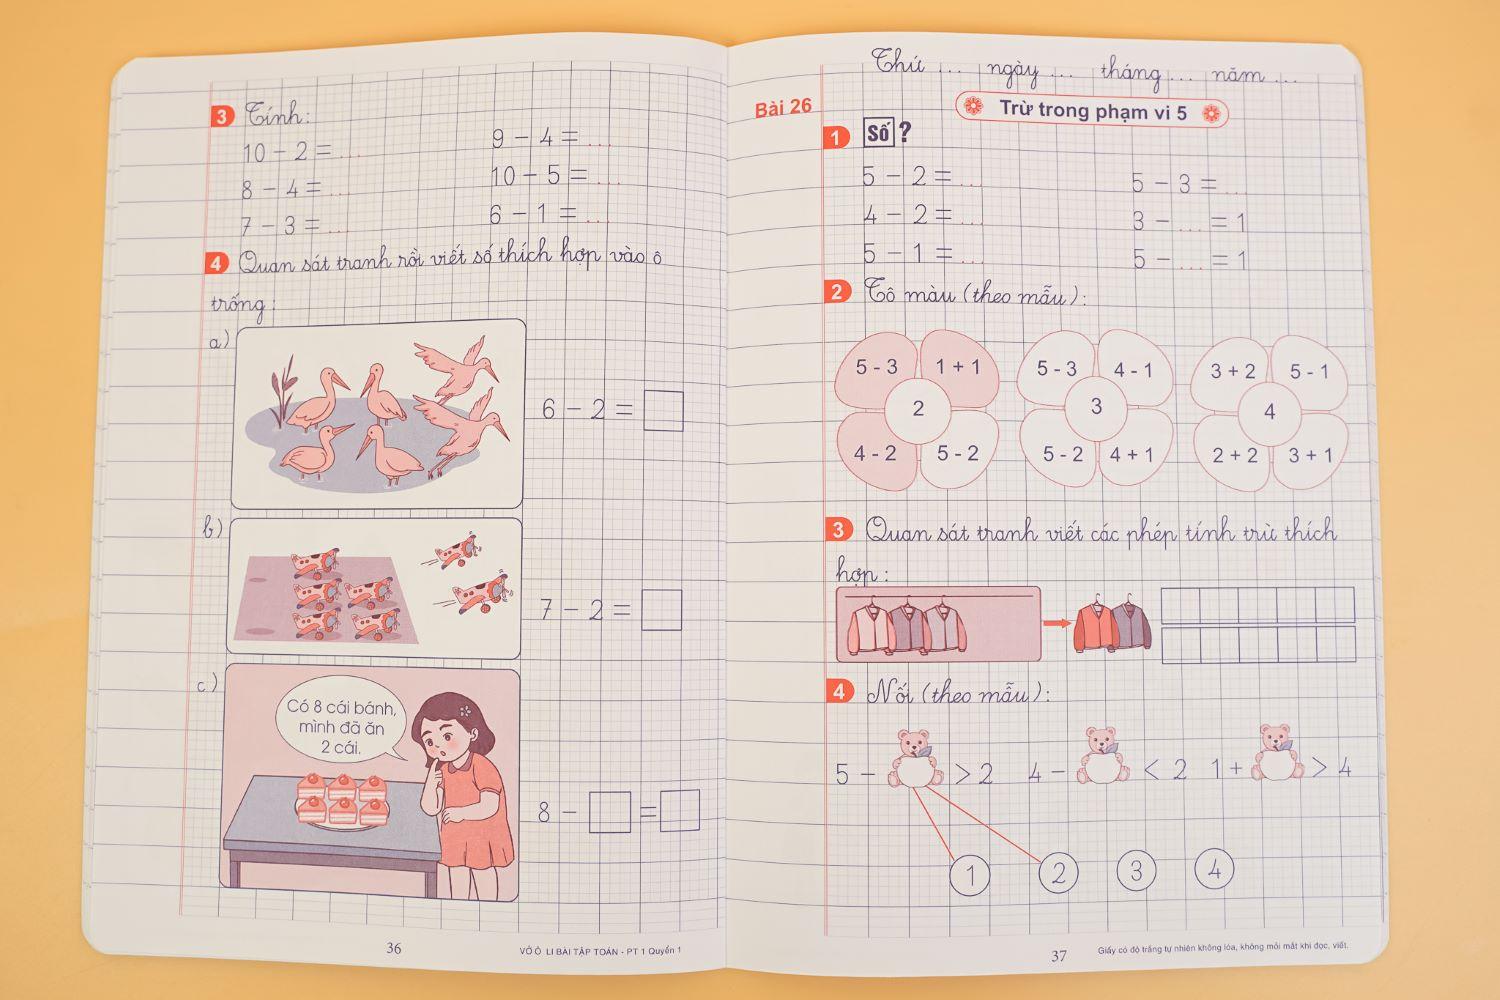 3 Tính:
10 - 2 = ...
9 - 4 = ...
8 - 4 = ...
10 - 5 = ...
7 - 3 = ...
6 - 1 = ...
4 Quan sát tranh rồi viết số thích hợp vào ô
trống:
a)
6 - 2 =
b)
7 - 2 =
c)
Có 8 cái bánh,
mình đã ăn
2 cái.
8 - =
36
VỞ Ô LI BÀI TẬP TOÁN - PT 1 Quyển 1
Thứ ... ngày ... tháng ... năm ...
Bài 26
Trừ trong phạm vi 5
1 Số ?
5 - 2 = ...
5 - 3 = ...
4 - 2 = ...
3 - ... = 1
5 - 1 = ...
5 - ... = 1
2 Tô màu (theo mẫu):
5 - 3 1 + 1
2
4 - 2 5 - 2
5 - 3 4 - 1
3
5 - 2 4 + 1
3 + 2 5 - 1
4
2 + 2 3 + 1
3 Quan sát tranh viết các phép tính trừ thích
hợp:
4 Nối (theo mẫu):
5 - > 2
4 - < 2
1 + > 4
1 2 3 4
37
Giấy có độ trắng tự nhiên không lóa, không mỏi mắt khi đọc, viết.